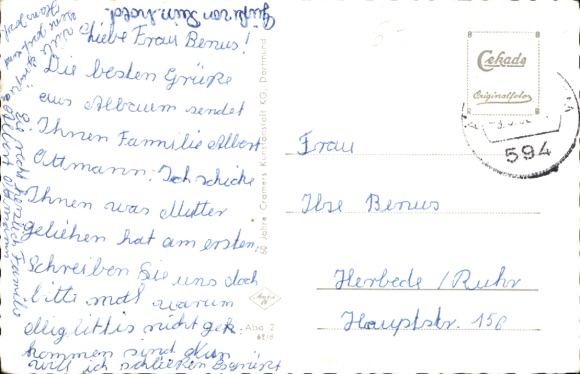 Liebe Frau Benus!
Die besten Grüße
aus Albaum sendet
Ihnen Familie Albert
Ottmann. Ich schicke
Ihnen was Mutter
geliehen hat am ersten.
Schreiben Sie uns doch
bitte mal warum
nicht gek.
kommen sind. Nun
will ich schließen Es grüßt
Sie recht herzlich Familie
Albert Ottmann
60 Jahre Cramers Kunstanstalt KG, Dortmund
Cekade
Originalfoto
594
Frau
Ilse Benus
Herbede /Ruhr
Hauptstr. 156